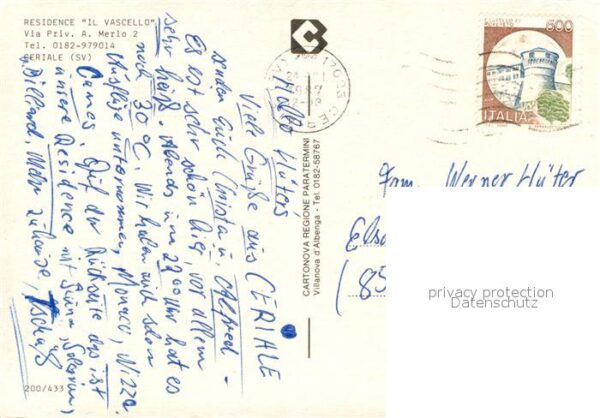 RESIDENCE "IL VASCELLO"
Via Priv. A. Merlo 2
Tel. 0182-979014
CERIALE (SV)
Hallo Hüters
Viele Grüße aus CERIALE
senden Euch Christa u. Alfred -
Es ist sehr schön hier, vor allem
sehr heiß. Abends um 22 00 Uhr hat es
noch 30°C. Wir haben auch schon
Ausflüge unternommen, Monaco, Nizza,
Cannes. Auf der Rückseite das ist
unsere Residence mit Sauna, Solarium,
Billard. Mehr zuhause, Tschüß
200/433
CARTONOVA REGIONE PARATERMINI
Villanova d'Albenga - Tel. 0182-58767
17023 CE
600
ITALIA
Fam. Werner Hüter
(85
privacy protection
Datenschutz